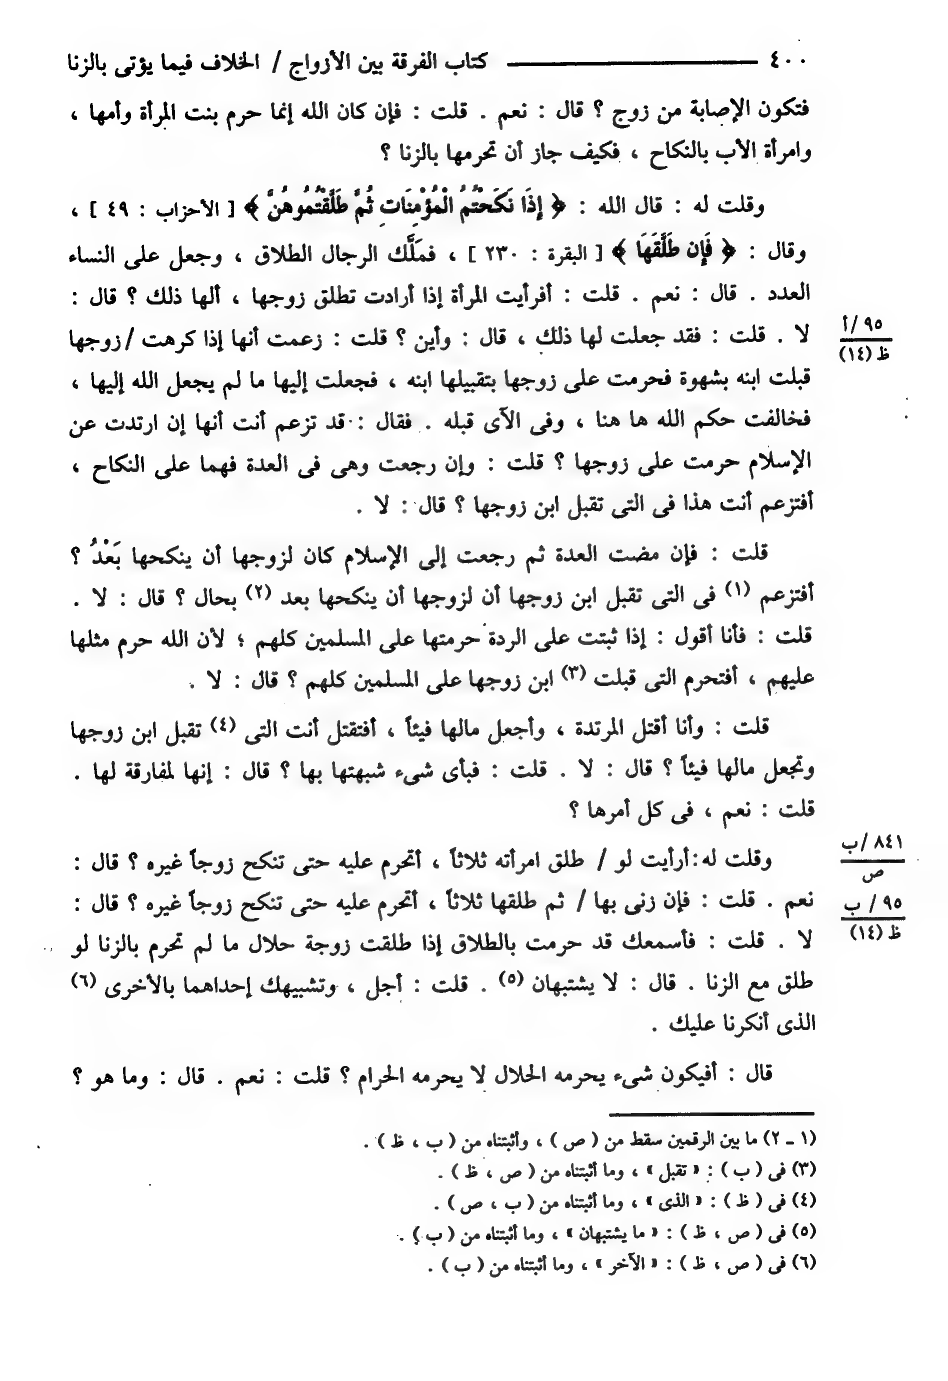 ٤٠٠ ــــــــــــــــ كتاب الفرقة بين الأزواج / الخلاف فيما يؤتى بالزنا
فتكون الإصابة من زوج ؟ قال : نعم . قلت : فإن كان الله إنما حرم بنت المرأة وأمها ،
وامرأة الأب بالنكاح ، فكيف جاز أن تحرمها بالزنا ؟
وقلت له : قال الله : ﴿ إِذَا نَكَحْتُمُ الْمُؤْمِنَاتِ ثُمَّ طَلَّقْتُمُوهُنَّ ﴾ [ الأحزاب : ٤٩ ] ،
وقال : ﴿ فَإِن طَلَّقَهَا ﴾ [ البقرة : ٢٣٠ ] ، فملَّك الرجال الطلاق ، وجعل على النساء
العدد . قال : نعم . قلت : أفرأيت المرأة إذا أرادت تطلق زوجها ، ألها ذلك ؟ قال :
لا . قلت : فقد جعلت لها ذلك ، قال : وأين ؟ قلت : زعمت أنها إذا كرهت / زوجها
٩٥ /أ
ظ (١٤)
قبلت ابنه بشهوة فحرمت على زوجها بتقبيلها ابنه ، فجعلت إليها ما لم يجعل الله إليها ،
فخالفت حكم الله ها هنا ، وفى الآى قبله . فقال : قد تزعم أنت أنها إن ارتدت عن
الإسلام حرمت على زوجها ؟ قلت : وإن رجعت وهى فى العدة فهما على النكاح ،
أفتزعم أنت هذا فى التى تقبل ابن زوجها ؟ قال : لا .
قلت : فإن مضت العدة ثم رجعت إلى الإسلام كان لزوجها أن ينكحها بَعْدُ ؟
أفتزعم (١) فى التى تقبل ابن زوجها أن لزوجها أن ينكحها بعد (٢) بحال ؟ قال : لا .
قلت : فأنا أقول : إذا ثبتت على الردة حرمتها على المسلمين كلهم ؛ لأن الله حرم مثلها
عليهم ، أفتحرم التى قبلت (٣) ابن زوجها على المسلمين كلهم ؟ قال : لا .
قلت : وأنا أقتل المرتدة ، وأجعل مالها فيئاً ، أفتقتل أنت التى (٤) تقبل ابن زوجها
وتجعل مالها فيئاً ؟ قال : لا . قلت : فبأى شىء شبهتها بها ؟ قال : إنها لمفارقة لها .
قلت : نعم ، فى كل أمرها ؟
وقلت له : أرأيت لو / طلق امرأته ثلاثاً ، أتحرم عليه حتى تنكح زوجاً غيره ؟ قال :
٨٤١ /ب
ص
نعم . قلت : فإن زنى بها / ثم طلقها ثلاثاً ، أتحرم عليه حتى تنكح زوجاً غيره ؟ قال :
٩٥ / ب
ظ (١٤)
لا . قلت : فأسمعك قد حرمت بالطلاق إذا طلقت زوجة حلال ما لم تحرم بالزنا لو
طلق مع الزنا . قال : لا يشتبهان (٥) . قلت : أجل ، وتشبيهك إحداهما بالأخرى (٦)
الذى أنكرنا عليك .
قال : أفيكون شىء يحرمه الحلال لا يحرمه الحرام ؟ قلت : نعم . قال : وما هو ؟
(١ ـ ٢) ما بين الرقمين سقط من ( ص ) ، وأثبتناه من ( ب ، ظ ) .
(٣) فى ( ب ) : « تقبل » ، وما أثبتناه من ( ص ، ظ ) .
(٤) فى ( ظ ) : « الذى » ، وما أثبتناه من ( ب ، ص ) .
(٥) فى ( ص ، ظ ) : « ما يشتبهان » ، وما أثبتناه من ( ب ) .
(٦) فى ( ص ، ظ ) : « الآخر » ، وما أثبتناه من ( ب ) .